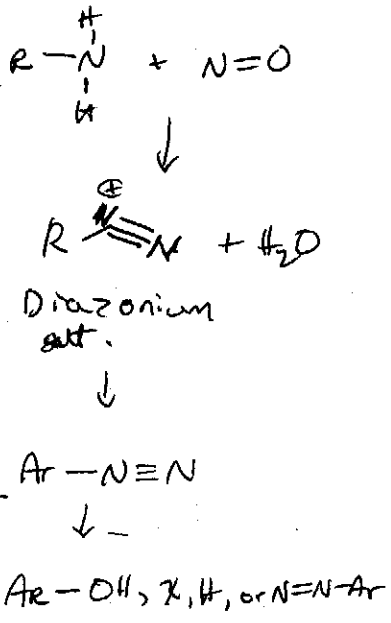 H
R—N + N=O
H
↓
⊕
R N≡N + H₂O
Diazonium
salt.
↓
Ar—N≡N
↓ –
Ar—OH, X, H, or N=N–Ar